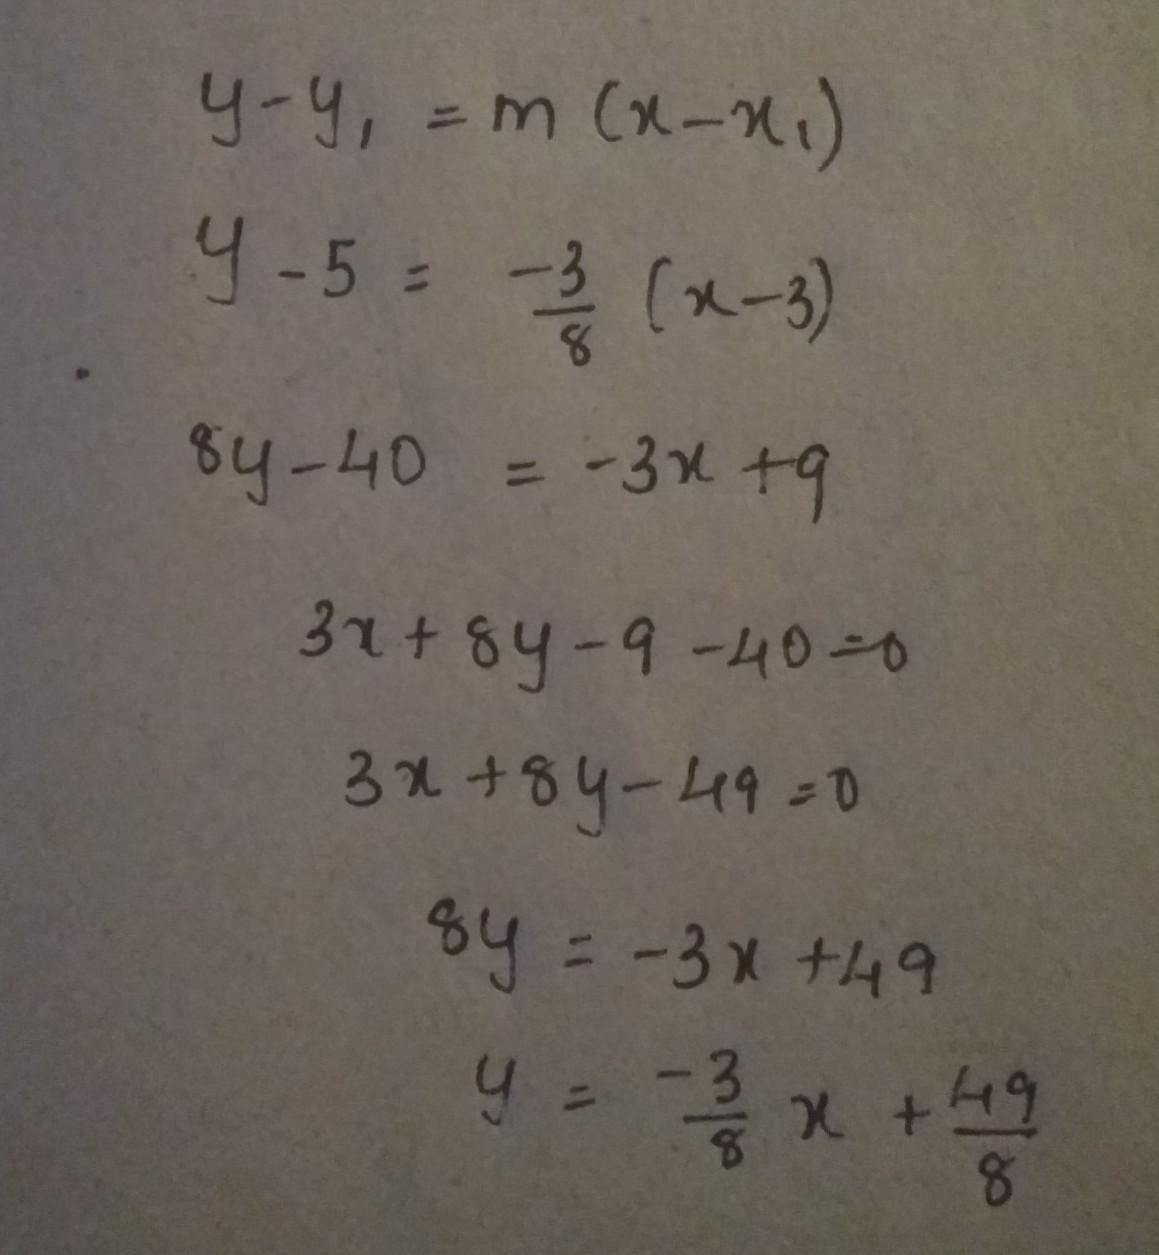 y - y₁ = m (x - x₁)
y - 5 = -3/8 (x - 3)
8y - 40 = -3x + 9
3x + 8y - 9 - 40 = 0
3x + 8y - 49 = 0
8y = -3x + 49
y = -3/8 x + 49/8